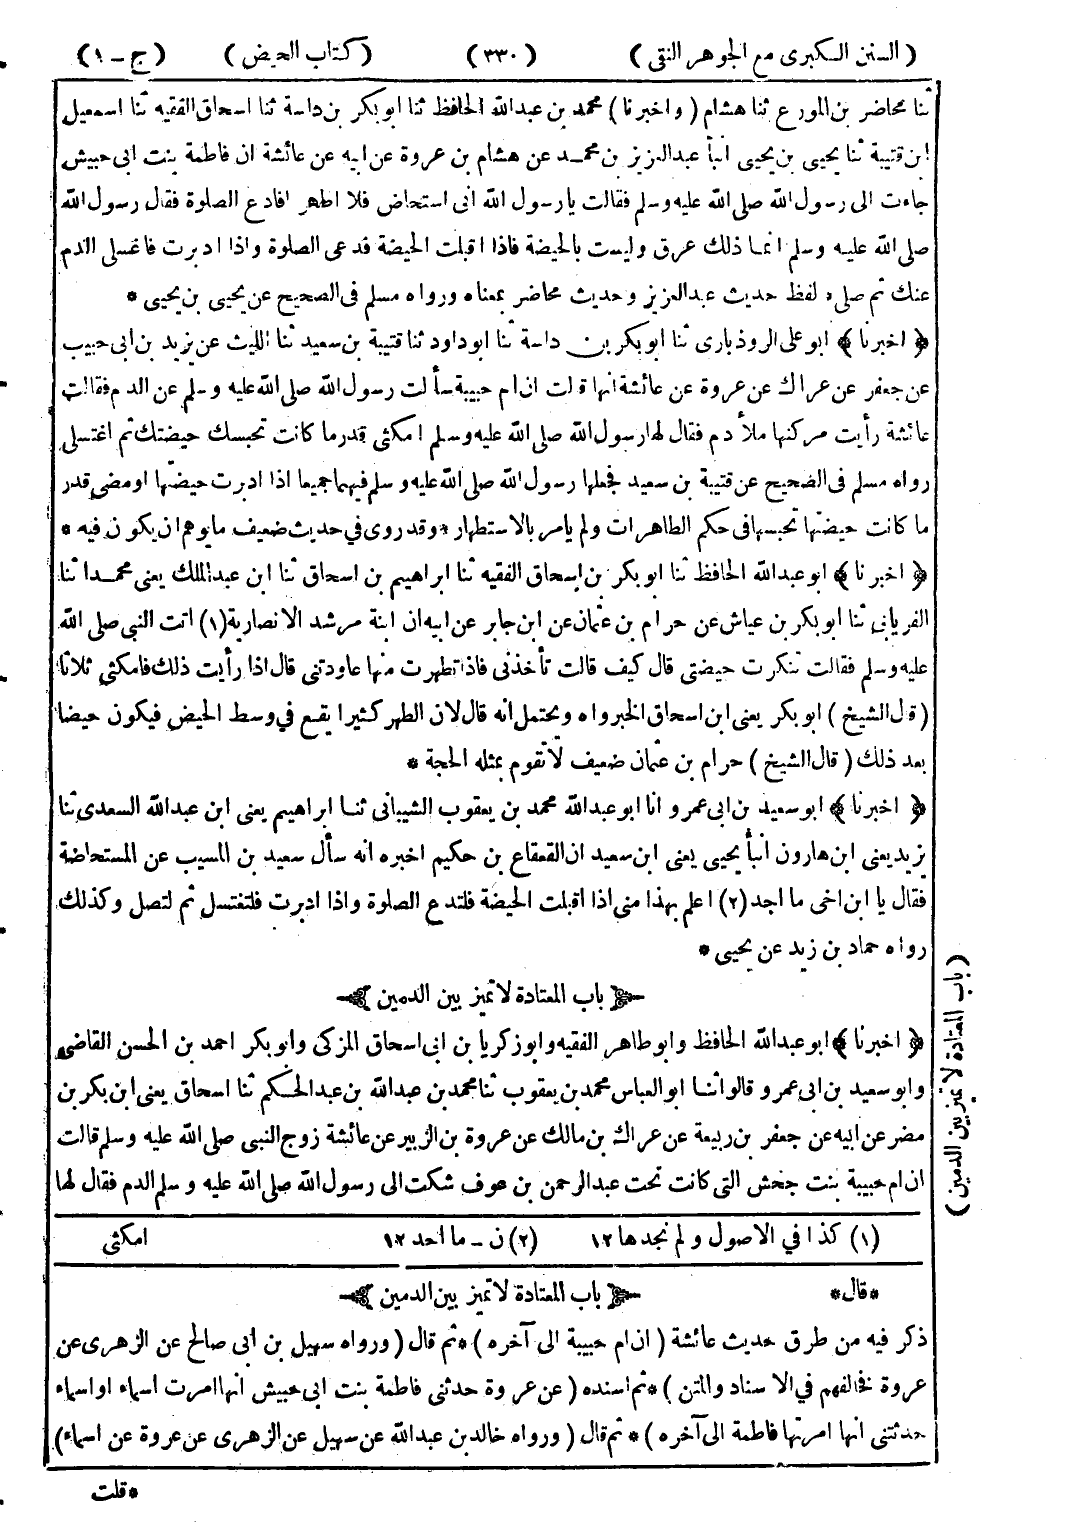 ( السنن الكبرى مع الجوهر النقى ) ( ٣٣٠ ) ( كتاب الحيض ) ( ج – ١ )
ثنا محاضر بن المورع ثنا هشام ( واخبرنا ) محمد بن عبدالله الحافظ ثنا ابوبكر بن داسة ثنا اسحاق الفقيه ثنا اسمعيل
ابن قتيبة ثنا يحيى بن يحيى انبأ عبدالعزيز بن محمد عن هشام بن عروة عن ابيه عن عائشة ان فاطمة بنت ابى حبيش
جاءت الى رسول الله صلى الله عليه وسلم فقالت يارسول الله انى استحاض فلا اطهر افادع الصلوة فقال رسول الله
صلى الله عليه وسلم انما ذلك عرق وليست بالحيضة فاذا اقبلت الحيضة فدعى الصلوة واذا ادبرت فاغسلى الدم
عنك ثم صلى * لفظ حديث عبدالعزيز وحديث محاضر بمعناه ورواه مسلم فى الصحيح عن يحيى بن يحيى *
﴿ اخبرنا ﴾ ابوعلى الروذبارى ثنا ابوبكر بن داسة ثنا ابوداود ثنا قتيبة بن سعيد ثنا الليث عن يزيد بن ابى حبيب
عن جعفر عن عراك عن عروة عن عائشة انها قالت ان ام حبيبة سألت رسول الله صلى الله عليه وسلم عن الدم فقالت
عائشة رأيت مركنها ملأ دم فقال لها رسول الله صلى الله عليه وسلم امكثى قدر ما كانت تحبسك حيضتك ثم اغتسلى
رواه مسلم فى الصحيح عن قتيبة بن سعيد فجعلها رسول الله صلى الله عليه وسلم فيهما جميعا اذا ادبرت حيضتها او مضى قدر
ما كانت حيضتها تحبسها فى حكم الطاهرات ولم يامر بالاستطهار * وقد روى فى حديث ضعيف ما يوهم ان يكون فيه *
﴿ اخبرنا ﴾ ابوعبدالله الحافظ ثنا ابوبكر بن اسحاق الفقيه ثنا ابراهيم بن اسحاق ثنا ابن عبدالملك يعنى محمدا ثنا
الفريابى ثنا ابوبكر بن عياش عن حرام بن عثمان عن ابن جابر عن ابيه ان ابنة مرشد الانصارية (١) اتت النبى صلى الله
عليه وسلم فقالت تنكرت حيضتى قال كيف قالت تأخذنى فاذا تطهرت منها عاودتنى قال اذا رأيت ذلك فامكثى ثلاثا
( قال الشيخ ) ابوبكر يعنى ابن اسحاق الخبر واه ويحتمل انه قال لان الطهر كثيرا يقع فى وسط الحيض فيكون حيضا
بعد ذلك ( قال الشيخ ) حرام بن عثمان ضعيف لا تقوم بمثله الحجة *
﴿ اخبرنا ﴾ ابوسعيد بن ابى عمرو انا ابوعبدالله محمد بن يعقوب الشيبانى ثنا ابراهيم يعنى ابن عبدالله السعدى ثنا
يزيد يعنى ابن هارون انبأ يحيى يعنى ابن سعيد ان القعقاع بن حكيم اخبره انه سأل سعيد بن المسيب عن المستحاضة
فقال يا ابن اخى ما اجد (٢) اعلم بهذا منى اذا اقبلت الحيضة فلتدع الصلوة واذا ادبرت فلتغتسل ثم لتصل وكذلك
رواه حماد بن زيد عن يحيى *
﴿ باب المعتادة لا تميز بين الدمين ﴾
﴿ اخبرنا ﴾ ابوعبدالله الحافظ وابوطاهر الفقيه وابوزكريا بن ابى اسحاق المزكى وابوبكر احمد بن الحسن القاضى
وابوسعيد بن ابى عمرو قالوا ثنا ابوالعباس محمد بن يعقوب ثنا محمد بن عبدالله بن عبدالحكم ثنا اسحاق يعنى ابن بكر بن
مضر عن ابيه عن جعفر بن ربيعة عن عراك بن مالك عن عروة بن الزبير عن عائشة زوج النبى صلى الله عليه وسلم قالت
ان ام حبيبة بنت جحش التى كانت تحت عبدالرحمن بن عوف شكت الى رسول الله صلى الله عليه وسلم الدم فقال لها
( باب المعتادة لا تميز بين الدمين )
(١) كذا فى الاصول ولم نجدها ١٢ (٢) ن – ما احد ١٢ امكثى
*قال* ﴿ باب المعتادة لا تميز بين الدمين ﴾
ذكر فيه من طرق حديث عائشة ( ان ام حبيبة الى آخره ) * ثم قال ( ورواه سهيل بن ابى صالح عن الزهرى عن
عروة فخالفهم فى الاسناد والمتن ) * ثم اسنده ( عن عروة حدثنى فاطمة بنت ابى حبيش انها امرت اسماء او اسماء
حدثتنى انها امرتها فاطمة الى آخره ) * ثم قال ( ورواه خالد بن عبدالله عن سهيل عن الزهرى عن عروة عن اسماء )
*قلت